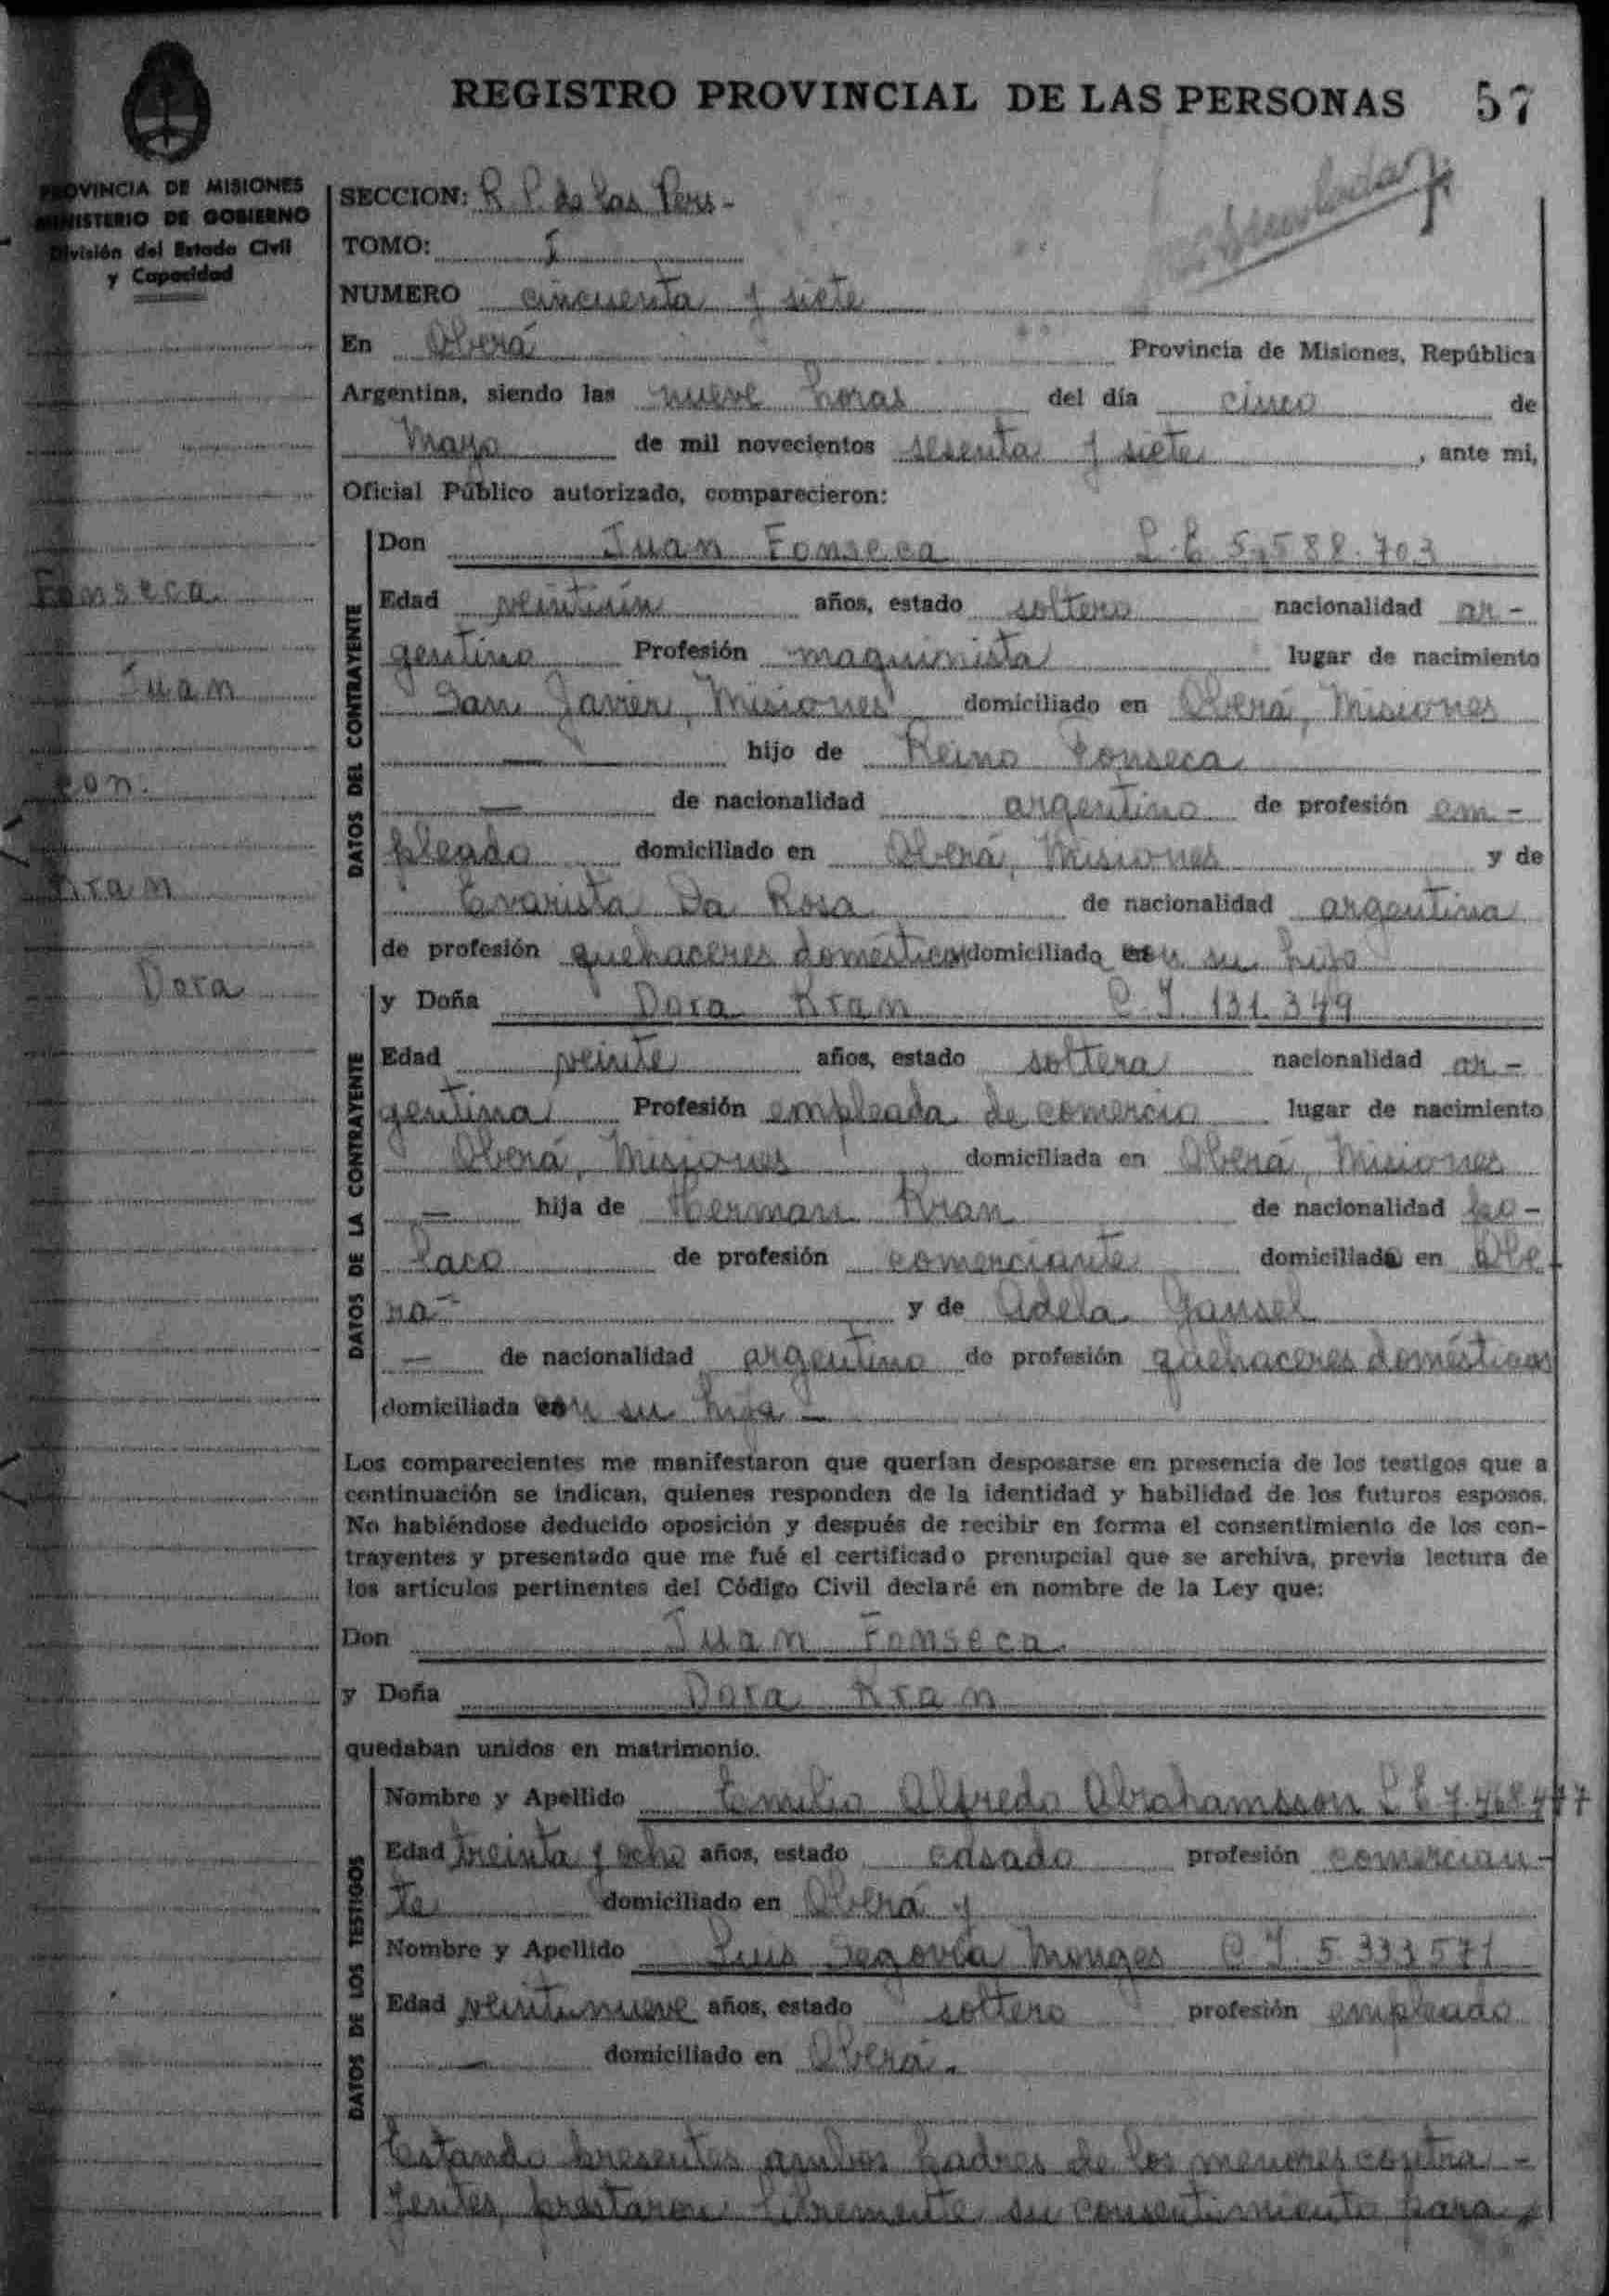 REGISTRO PROVINCIAL DE LAS PERSONAS 57
PROVINCIA DE MISIONES
MINISTERIO DE GOBIERNO
División del Estado Civil
y Capacidad
Fonseca
Juan
con
Kran
Dora
SECCION: R. P. de las Pers-
TOMO: I
NUMERO cincuenta y siete
En Oberá Provincia de Misiones, República
Argentina, siendo las nueve horas del día cinco de
Mayo de mil novecientos sesenta y siete, ante mi,
Oficial Público autorizado, comparecieron:
DATOS DEL CONTRAYENTE
Don Juan Fonseca L.E 5.588.703
Edad veintiún años, estado soltero nacionalidad ar-
gentino Profesión maquinista lugar de nacimiento
San Javier, Misiones domiciliado en Oberá, Misiones
— hijo de Reino Fonseca
— de nacionalidad argentino de profesión em-
pleado domiciliado en Oberá, Misiones y de
Evarista Da Rosa de nacionalidad argentina
de profesión quehaceres domésticos domiciliado con su hijo
DATOS DE LA CONTRAYENTE
y Doña Dora Kran C.I. 131.349
Edad veinte años, estado soltera nacionalidad ar-
gentina Profesión empleada de comercio lugar de nacimiento
Oberá, Misiones domiciliada en Oberá, Misiones
— hija de Herman Kran de nacionalidad po-
laco de profesión comerciante domiciliada en Obe
rá- y de Adela Gansel
— de nacionalidad argentina de profesión quehaceres domésticos
domiciliada con su hija —
Los comparecientes me manifestaron que querían desposarse en presencia de los testigos que a
continuación se indican, quienes responden de la identidad y habilidad de los futuros esposos.
No habiéndose deducido oposición y después de recibir en forma el consentimiento de los con-
trayentes y presentado que me fué el certificado prenupcial que se archiva, previa lectura de
los artículos pertinentes del Código Civil declaré en nombre de la Ley que:
Don Juan Fonseca
y Doña Dora Kran
quedaban unidos en matrimonio.
DATOS DE LOS TESTIGOS
Nombre y Apellido Emilio Alfredo Abrahamsson L E 7.468.477
Edad treinta y ocho años, estado casado profesión comercian-
te domiciliado en Oberá y
Nombre y Apellido Luis Segovia Monges C.I. 5.333.571
Edad veintinueve años, estado soltero profesión empleado
— domiciliado en Oberá.
Estando presentes ambos padres de los menores contra-
yentes, prestaron libremente su consentimiento para